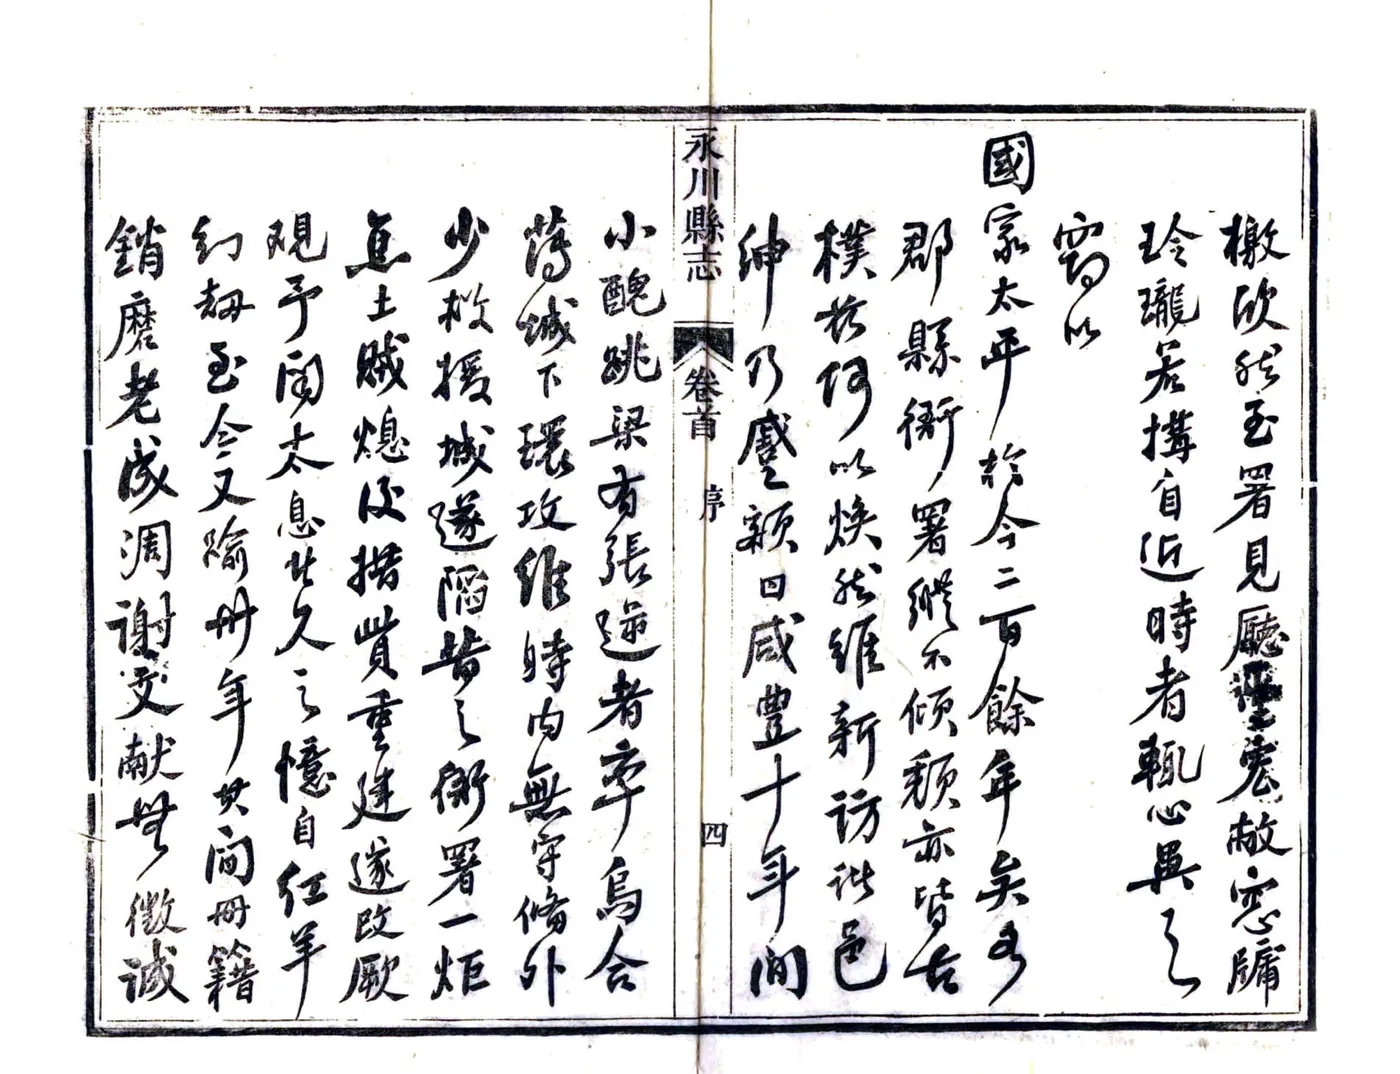 檄欣然至署見廳堂宏敞窓牖
玲瓏若搆自近時者輒心異之
竊以
國家太平於今二百餘年矣各
郡縣衙署縱不傾頹亦皆古
樸茲何以煥然維新訪諸邑
紳乃蹙額曰咸豐十年間
永川縣志 卷首 序 四
小醜跳梁有張逆者率烏合
薄城下環攻維時內無守備外
少救援城遂陷昔之衙署一炬
焦土賊熄後措貲重建遂改厥
觀予聞太息者久之憶自紅羊
幻劫至今又踰卅年其間冊籍
銷磨老成凋謝文献無徵誠